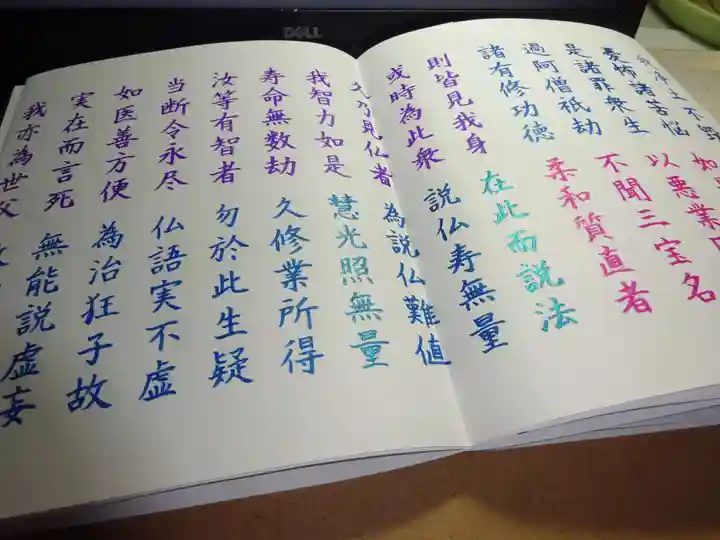 DELL
我浄土不毀
憂怖諸苦悩
如
是諸罪衆生
以悪業因
過阿僧祇劫
不聞三宝名
諸有修功徳
柔和質直者
則皆見我身
在此而説法
或時為此衆
説仏寿無量
久乃見仏者
為説仏難値
我智力如是
慧光照無量
寿命無数劫
久修業所得
汝等有智者
勿於此生疑
当断令永尽
仏語実不虚
如医善方便
為治狂子故
実在而言死
無能説虚妄
我亦為世父